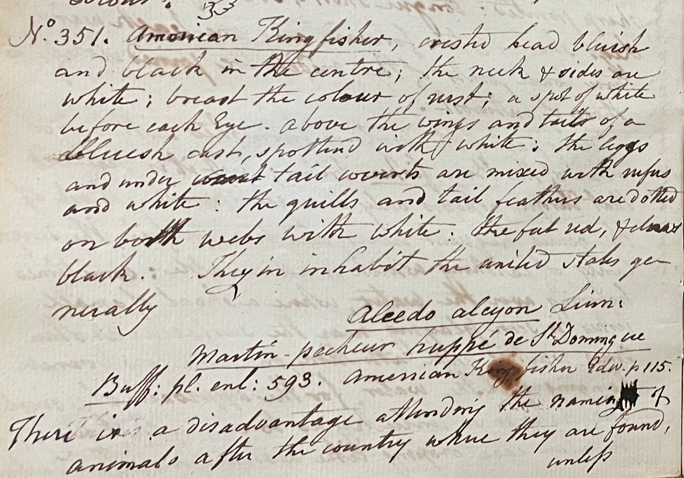 33
No. 351. American Kingfisher, crested head bluish
and black in the centre; the neck & sides are
white; breast the colour of rust; a spot of white
before each Eye. above the wings and tails of a
bluish cast, spotted with white: the legs
and under tail coverts are mixed with rufus
and white: the quills and tail feathers are dotted
on both webs with white: the feet red, & claws
black. They inhabit the united states ge
nerally
Alcedo alcyon Linn:
Martin-pecheur huppé de St. Domingue
Buff: pl. enl: 593. American Kingfisher Edw. p 115.
There is a disadvantage attending the naming of
animals after the country where they are found,
unless